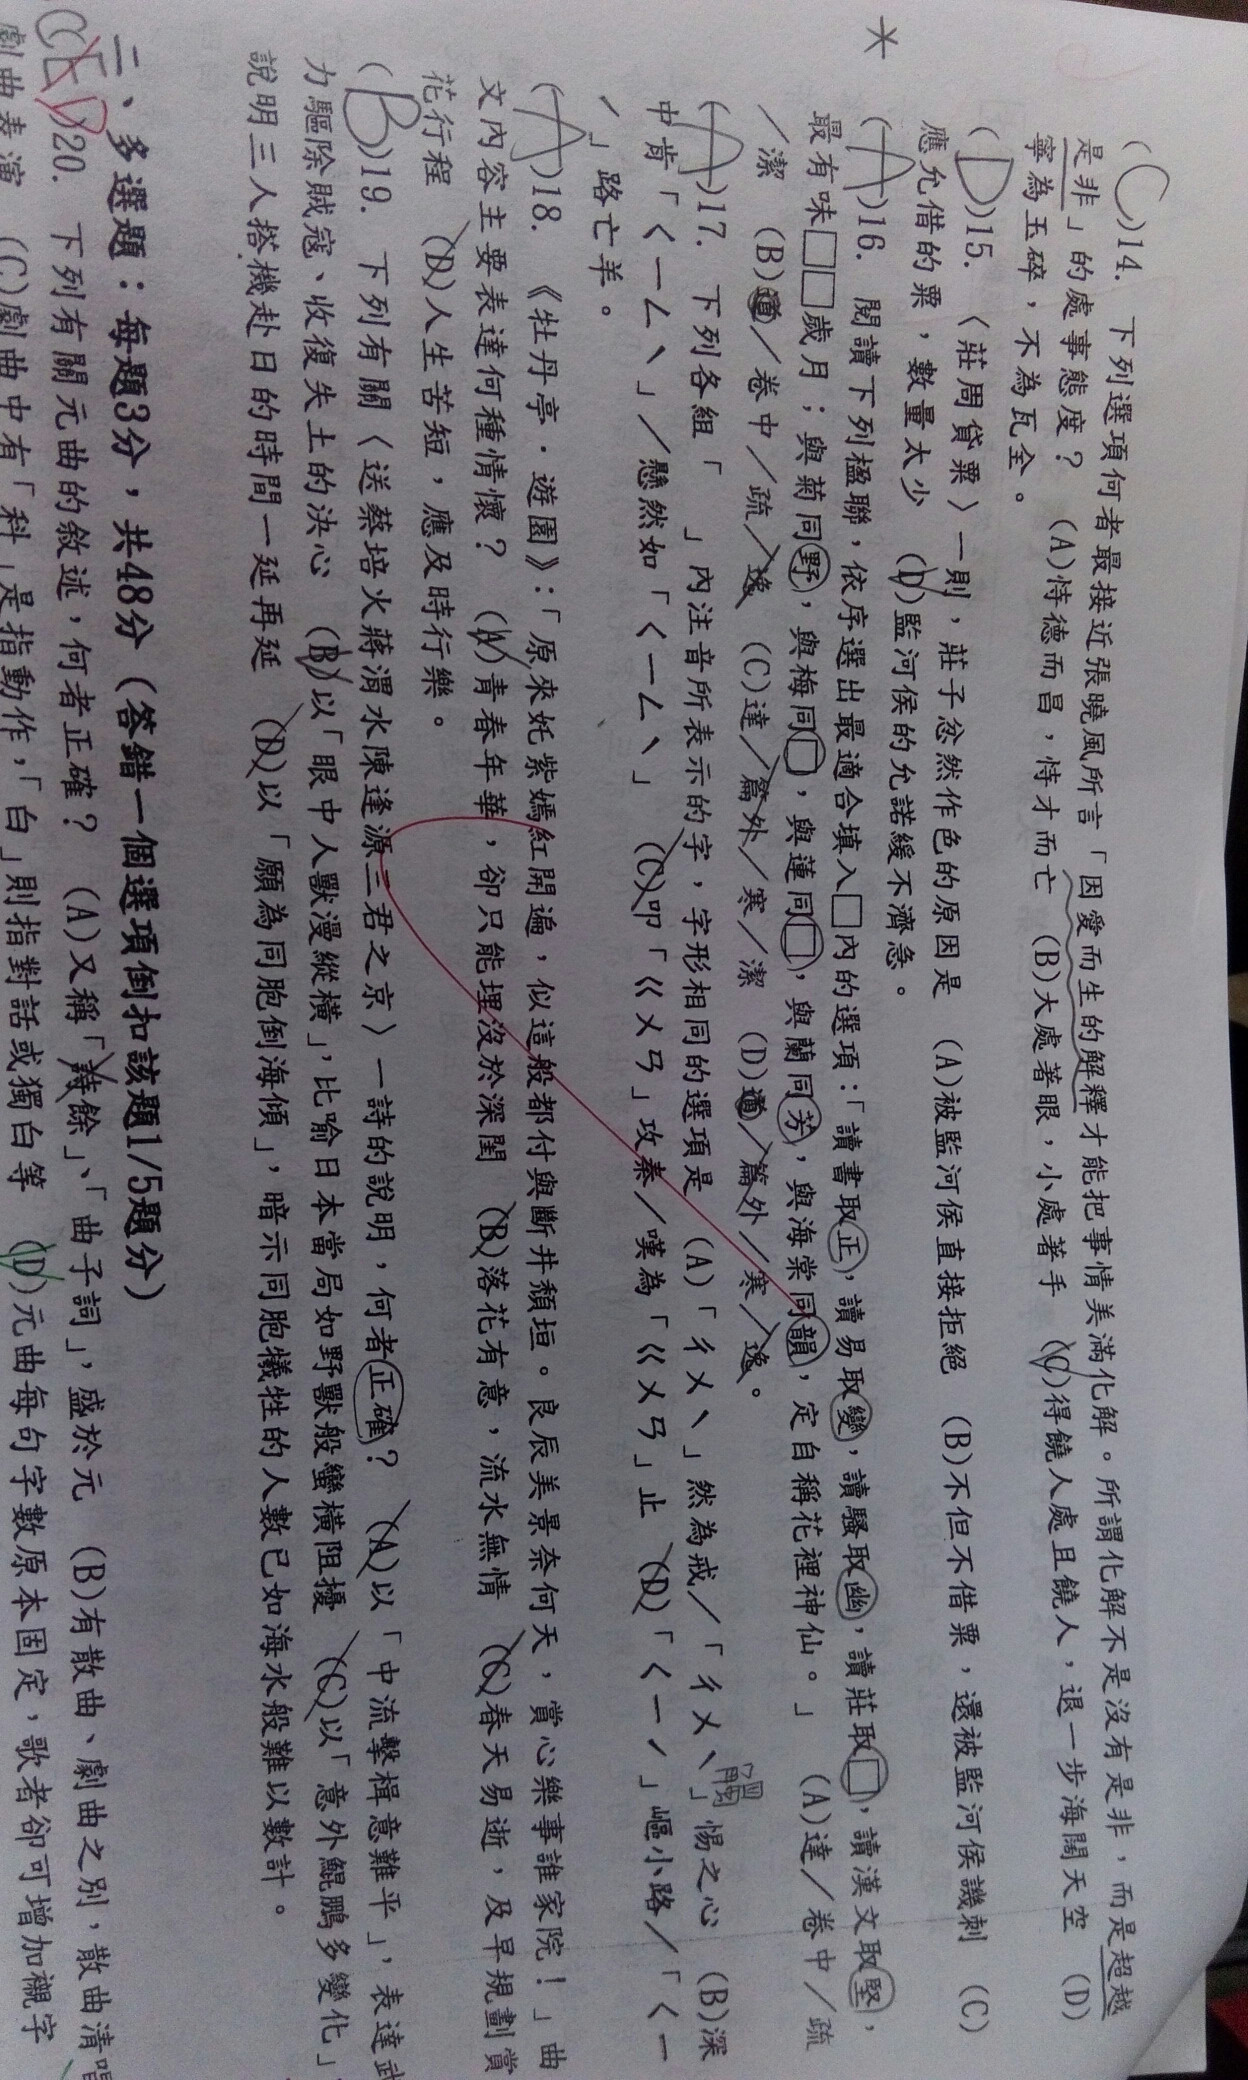 (C)14. 下列選項何者最接近張曉風所言「因愛而生的解釋才能把事情美滿化解。所謂化解不是沒有是非,而是超越
是非」的處事態度? (A)恃德而昌,恃才而亡 (B)大處著眼,小處著手 (C)得饒人處且饒人,退一步海闊天空 (D)
寧為玉碎,不為瓦全。
(D)15. 〈莊周貸粟〉一則,莊子忿然作色的原因是 (A)被監河侯直接拒絕 (B)不但不借粟,還被監河侯譏刺 (C)
應允借的粟,數量太少 (D)監河侯的允諾緩不濟急。
*
(A)16. 閱讀下列楹聯,依序選出最適合填入□內的選項:「讀書取正,讀易取變,讀騷取幽,讀莊取□,讀漢文取堅,
最有味□□歲月;與菊同野,與梅同□,與蓮同□,與蘭同芳,與海棠同韻,定自稱花裡神仙。」 (A)達/卷中/疏
/潔 (B)適/卷中/疏/逸 (C)達/篇外/寒/潔 (D)適/篇外/寒/逸。
(A)17. 下列各組「 」內注音所表示的字,字形相同的選項是 (A)「ㄔㄨˋ」然為戒/「ㄔㄨˋ」惕之心 (B)深
觸
中肯「ㄑㄧㄥˋ」/懸然如「ㄑㄧㄥˋ」 (C)叩「ㄍㄨㄢ」攻秦/嘆為「ㄍㄨㄢ」止 (D)「ㄑㄧˊ」嶇小路/「ㄑㄧ
ˊ」路亡羊。
(A)18. 《牡丹亭.遊園》:「原來奼紫嫣紅開遍,似這般都付與斷井頹垣。良辰美景奈何天,賞心樂事誰家院!」曲
文內容主要表達何種情懷? (A)青春年華,卻只能埋沒於深閨 (B)落花有意,流水無情 (C)春天易逝,及早規劃賞
花行程 (D)人生苦短,應及時行樂。
(B)19. 下列有關〈送蔡培火蔣渭水陳逢源三君之京〉一詩的說明,何者正確? (A)以「中流擊楫意難平」,表達武
力驅除賊寇、收復失土的決心 (B)以「眼中人獸漫縱橫」,比喻日本當局如野獸般蠻橫阻擾 (C)以「意外鯤鵬多變化」,
說明三人搭機赴日的時間一延再延 (D)以「願為同胞倒海傾」,暗示同胞犧牲的人數已如海水般難以數計。
二、多選題:每題3分,共48分(答錯一個選項倒扣該題1/5題分)
(CED)20. 下列有關元曲的敘述,何者正確? (A)又稱「詩餘」、「曲子詞」,盛於元 (B)有散曲、劇曲之別,散曲清唱
劇曲表演 (C)劇曲中有「科」是指動作,「白」則指對話或獨白等 (D)元曲每句字數原本固定,歌者卻可增加襯字